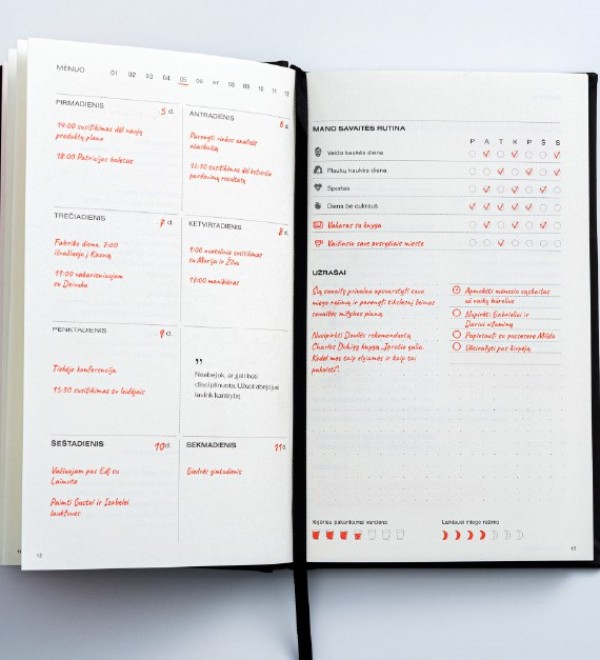 MĖNUO 01 02 03 04 05 06 07 08 09 10 11 12
PIRMADIENIS 5 d.
14:00 susitikimas dėl naujų
produktų plano
18:00 Patricijos baletas
ANTRADIENIS 6 d.
Parengti rinkos analizės
ataskaitą
15:30 susitikimas dėl ketvirčio
pardavimų rezultatų
TREČIADIENIS 7 d.
Fabriko diena, 7:00
išvažiuoju į Kauną
19:00 vakarieniaujam
su Deivoke
KETVIRTADIENIS 8 d.
9:00 nuotolinis susitikimas
su Marija ir Žilvu
18:00 manikiūras
PENKTADIENIS 9 d.
Tiekėjo konferencija
15:30 susitikimas su leidėjais
”
Neabejok, ar gali būti
disciplinuota. Užuot abejojusi
lavink kantrybę.
ŠEŠTADIENIS 10 d.
Važiuojam pas Edį su
Laimute
Paimti Gustei ir Izabelei
lauktuves
SEKMADIENIS 11 d.
Giedrės gimtadienis
12
MANO SAVAITĖS RUTINA
P A T K P Š S
Veido kaukės diena
Plaukų kaukės diena
Sportas
Diena be cukraus
Vakaras su knyga
Vaitinsiu savo pusryčiais mieste
UŽRAŠAI
Šią savaitę privalau apsvarstyti savo
miego režimą ir parengti tikslesnį šeimos
savaitės mitybos planą.
Nusipirkti Dovilės rekomenduotą
Charles Duhigg knygą „Įpročio galia.
Kodėl mes taip elgiamės ir kaip tai
pakeisti“.
Apmokėti mėnesio sąskaitas
už vaikų būrelius
Nupirkti Gabrieliui ir
Dariui vitaminų
Papietauti su pussesere Milda
Užsirašyti pas kirpėją
Išgėriau pakankamai vandens
Laikiausi miego režimo
13